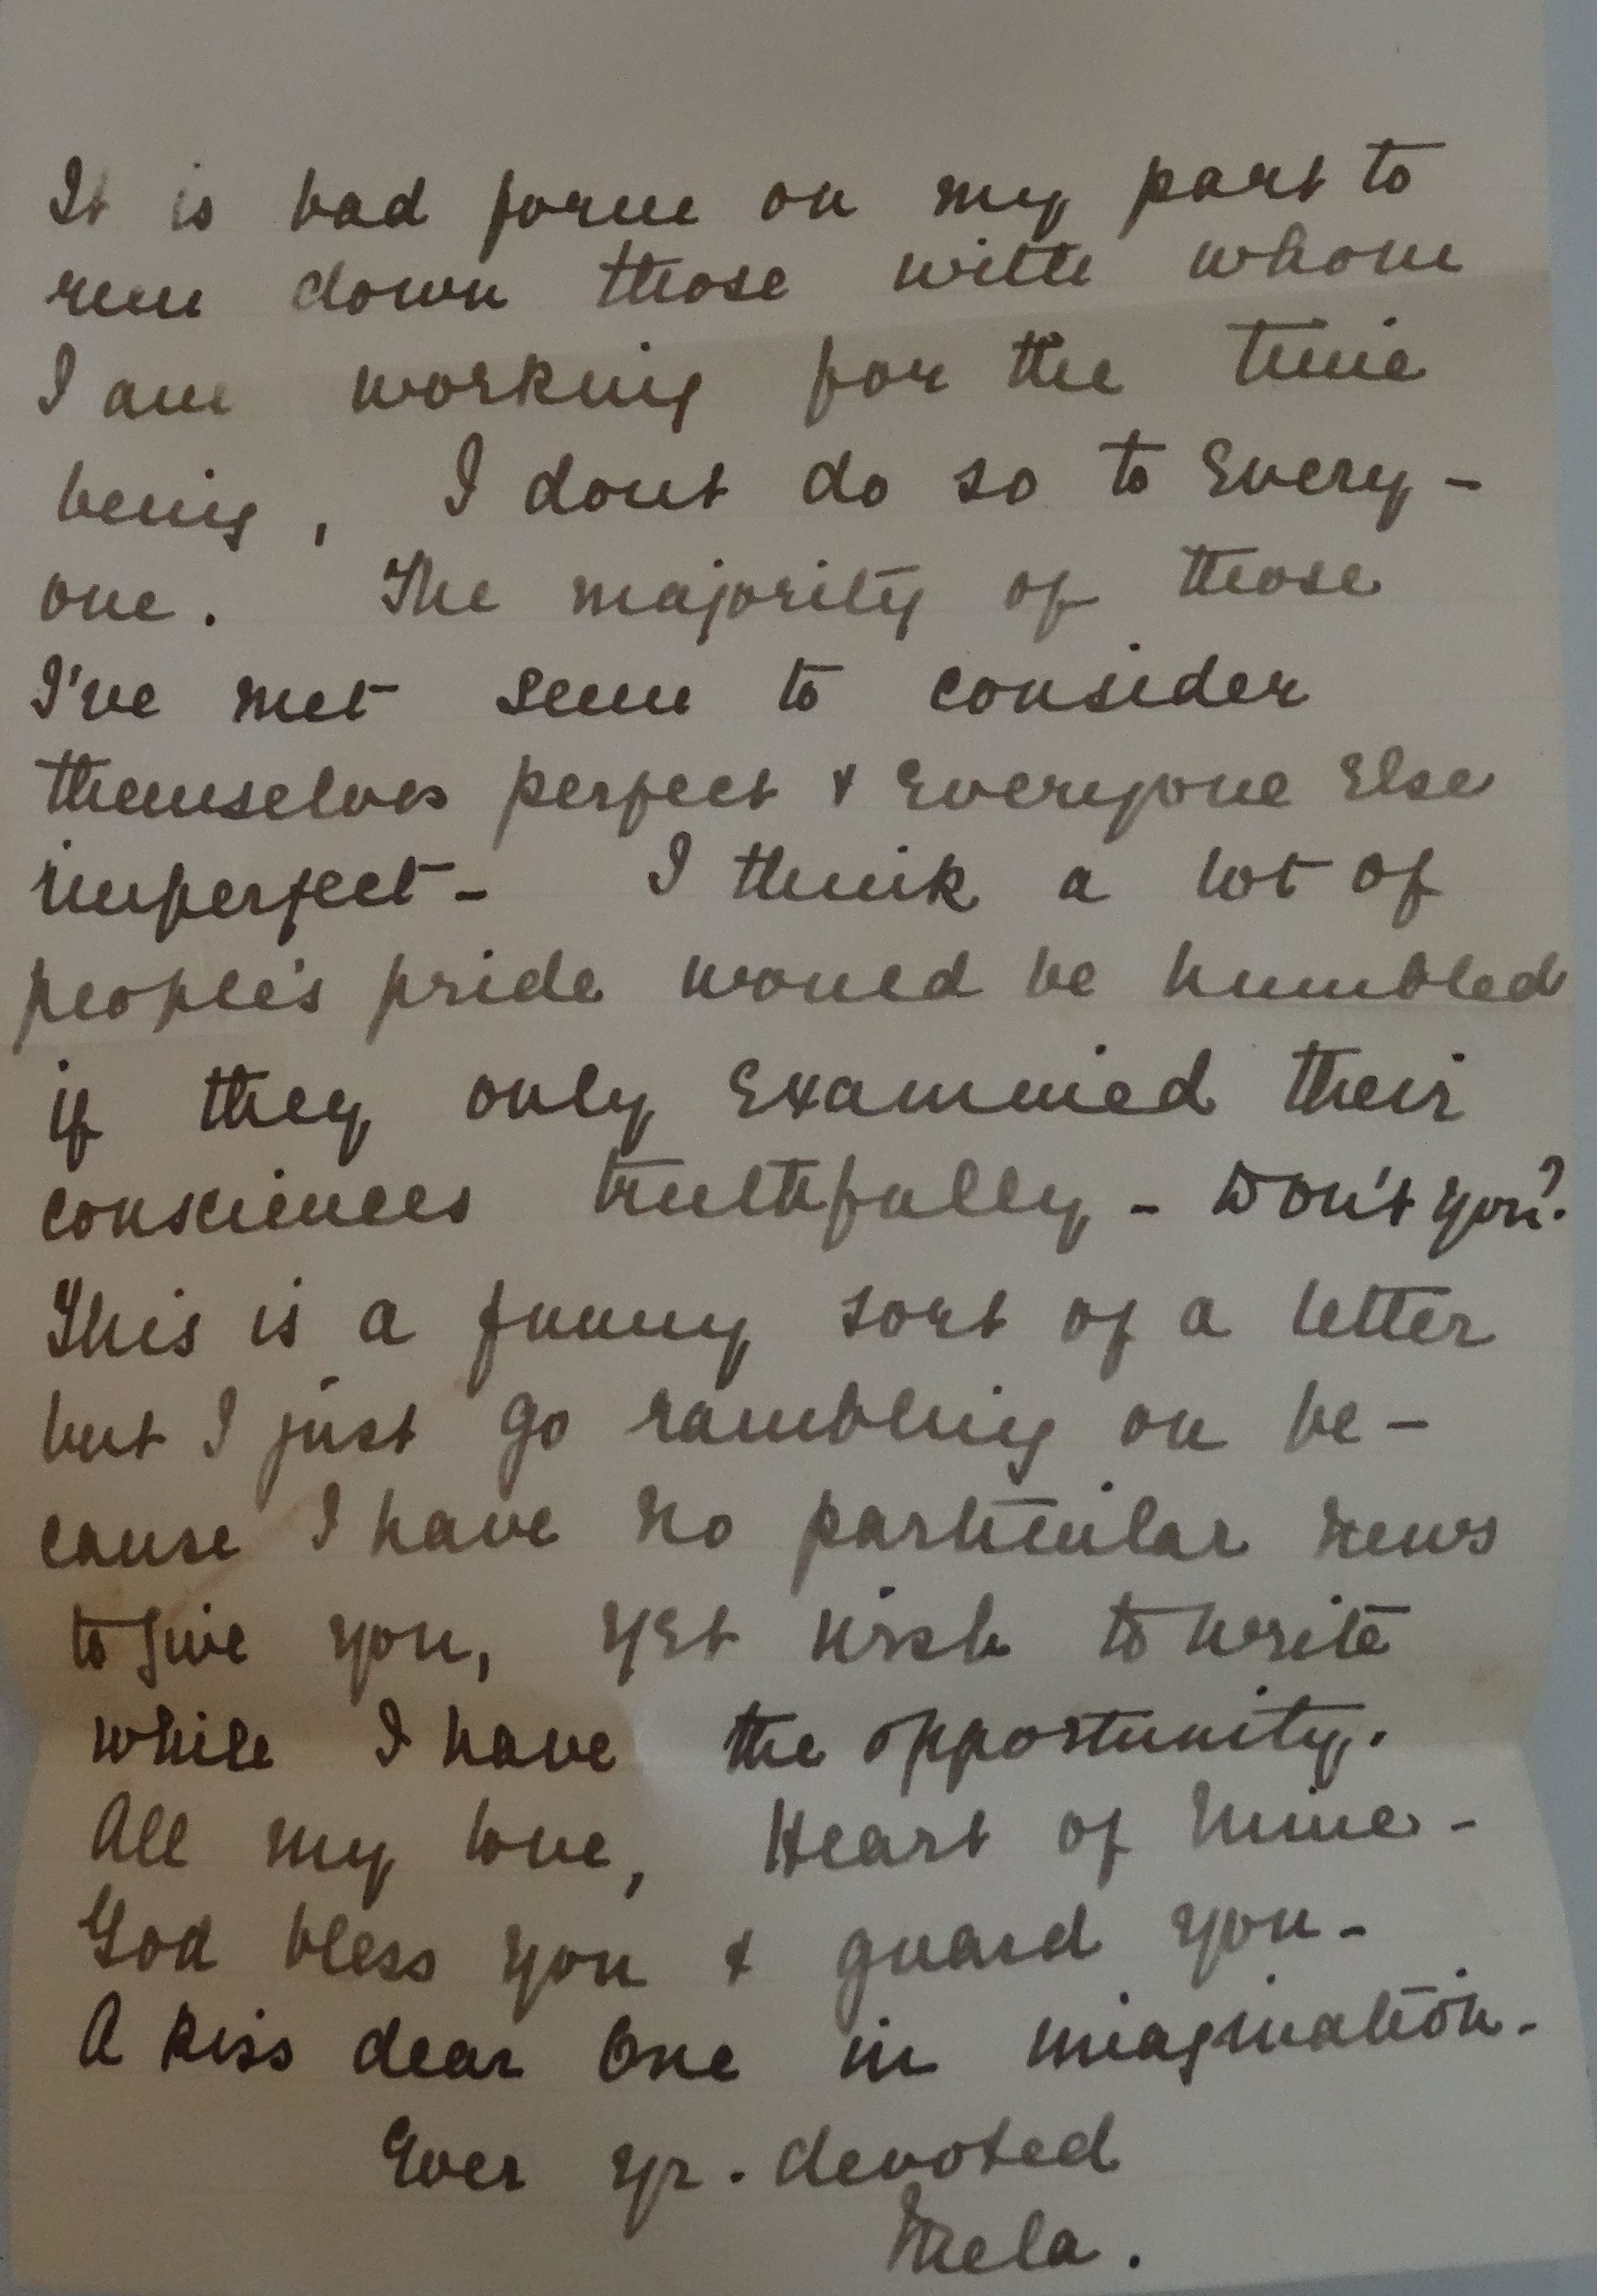 It is bad form on my part to
run down those with whom
I am working for the time
being, I dont do so to every-
one. The majority of those
I've met seem to consider
themselves perfect & Everyone Else
imperfect - I think a lot of
people's pride would be humbled
if they only Examined their
consciences truthfully - Don't you?
This is a funny sort of a letter
but I just go rambling on be-
cause I have no particular news
to give you, yet wish to write
while I have the opportunity.
All my love, Heart of Mine -
God bless you & guard you -
A kiss dear One in imagination -
Ever yr. devoted